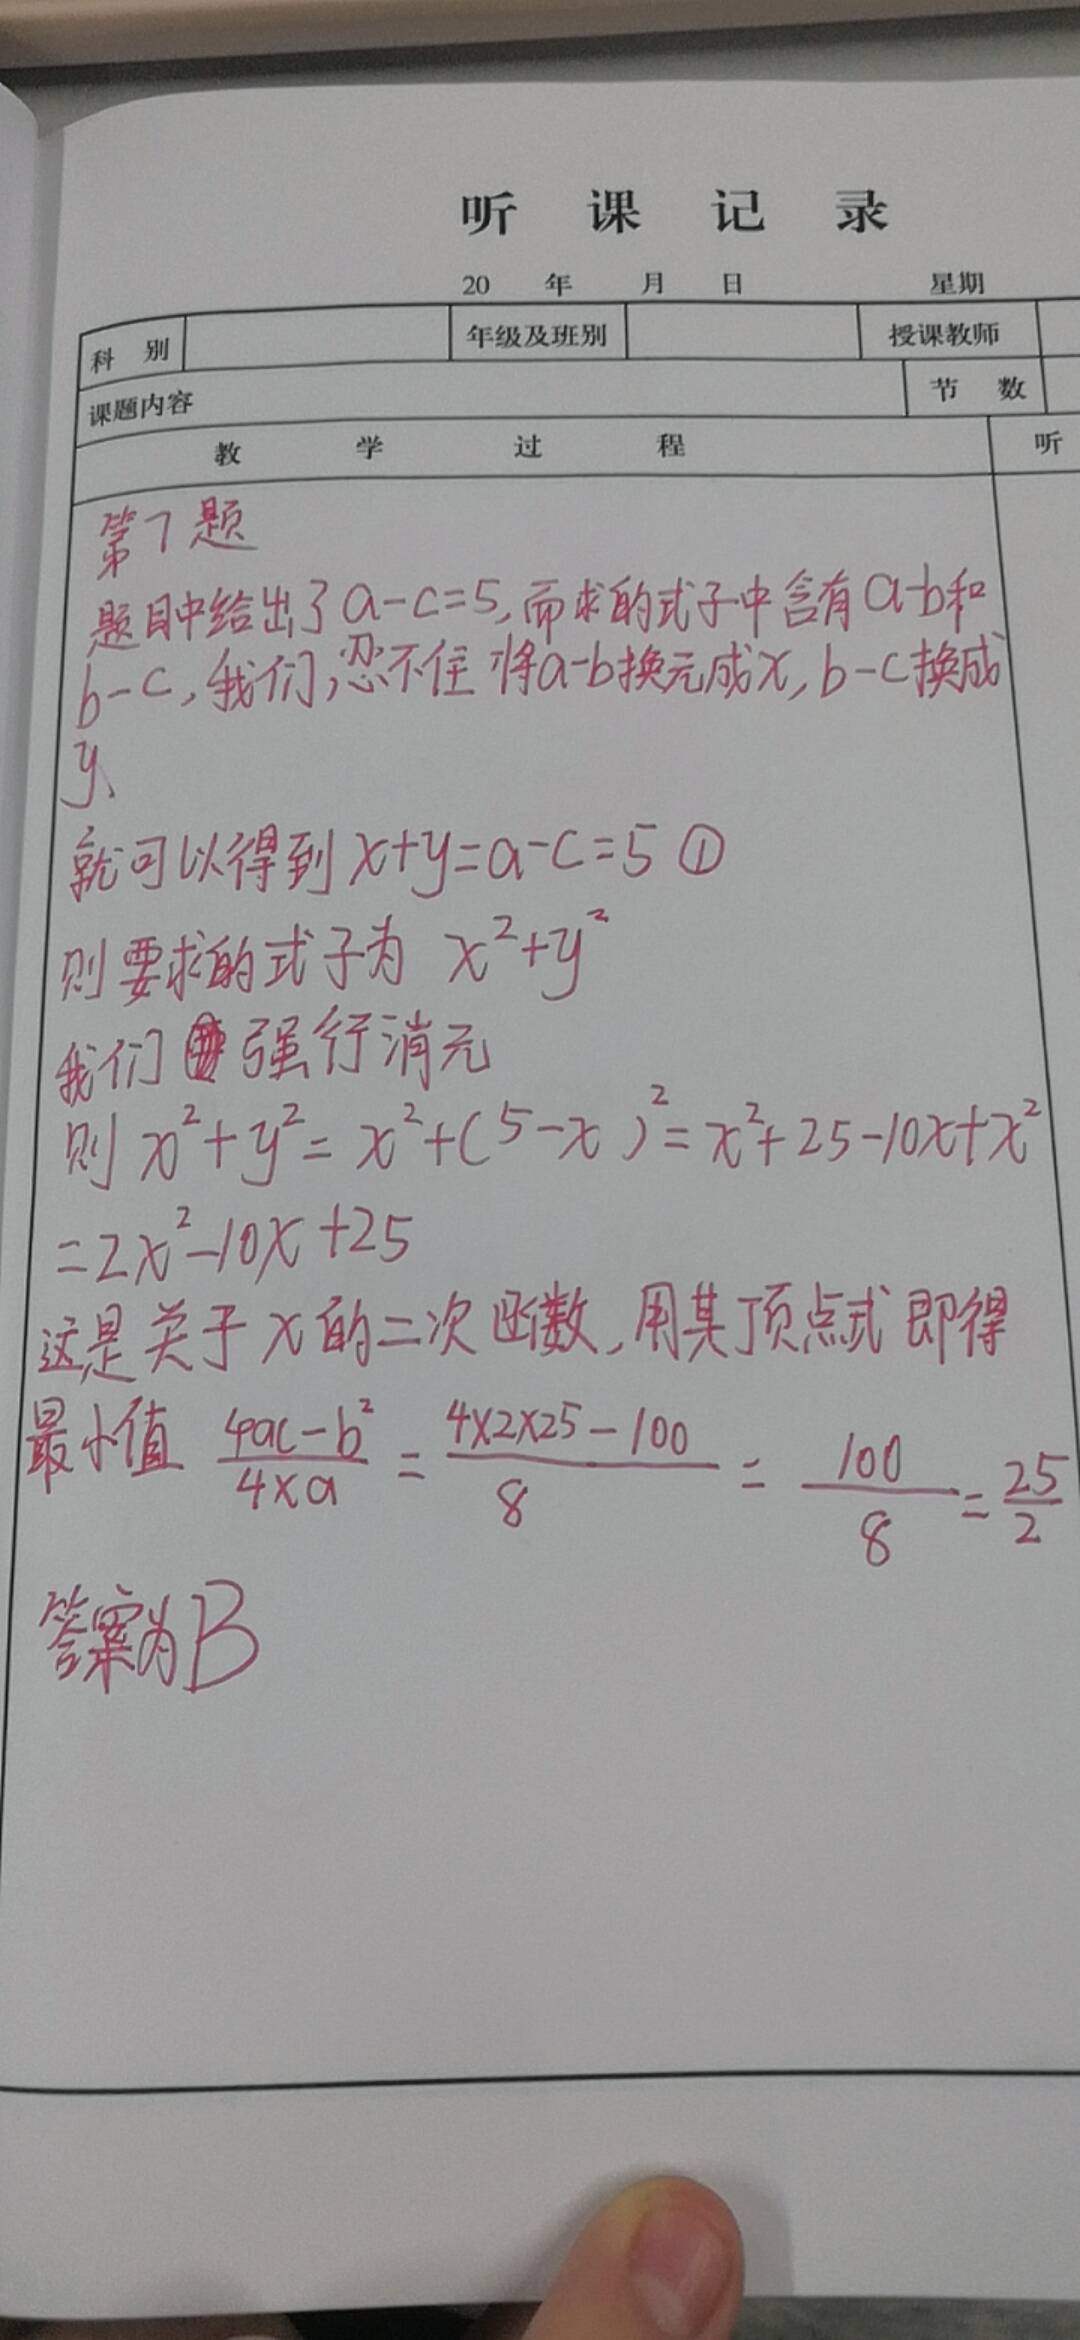 听 课 记 录
20 年 月 日 星期
科 别 年级及班别 授课教师
课题内容 节 数
教 学 过 程 听
第7题
题目中给出了a-c=5,而求的式子中含有a-b和
b-c,我们忍不住将a-b换元成x,b-c换成
y、
就可以得到x+y=a-c=5 ①
则要求的式子为 x²+y²
我们 强行消元
则 x²+y²=x²+(5-x)²=x²+25-10x+x²
=2x²-10x+25
这是关于x的二次函数,用其顶点式即得
最小值 \frac{4ac-b²}{4×a} = \frac{4×2×25-100}{8} = \frac{100}{8} = \frac{25}{2}
答案为B